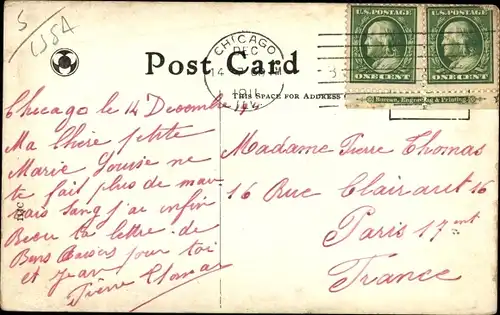 5
USA
CHICAGO
DEC
14
Post Card
THIS SPACE FOR ADDRESS
U.S. POSTAGE
ONE CENT
U.S. POSTAGE
ONE CENT
Bureau, Engraving & Printing
Chicago le 14 Decembre
Ma Chère petite
Marie Louise ne
te fait plus de mau
vais Sang j'ai enfin
Recu ta lettre de
Bons Baisers pour toi
et Jean
Pierre Thomas
Madame Pierre Thomas
16 Rue Clairaut 16
Paris 17 ment
France